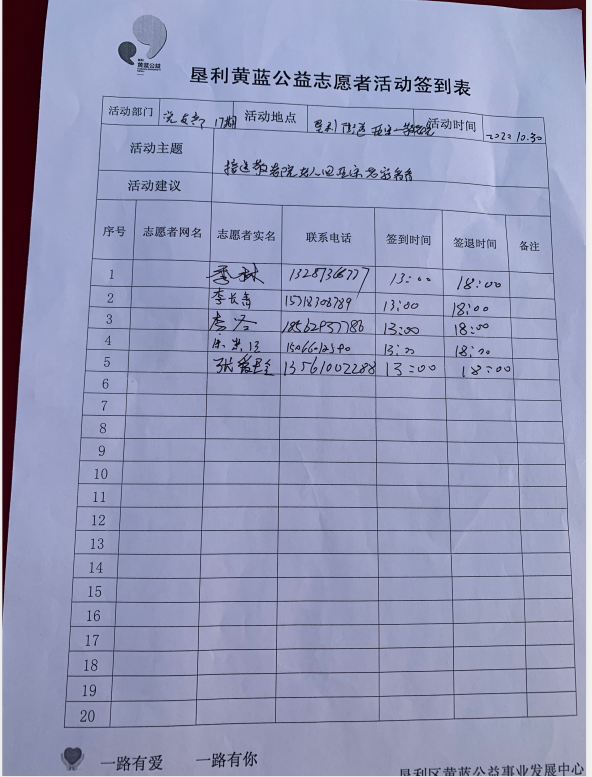 黄蓝公益
垦利黄蓝公益志愿者活动签到表
活动部门 17期 活动地点 垦利街道 活动时间 2022.10.30
活动主题
活动建议
序号 志愿者网名 志愿者实名 联系电话 签到时间 签退时间 备注
1 季林 13287366777 13:00 18:00
2 李长青 15718308789 13:00 18:00
3 18562957786 13:00 18:00
4 13:00 18:00
5 13561002288 13:00 18:00
6
7
8
9
10
11
12
13
14
15
16
17
18
19
20
一路有爱 一路有你
垦利区黄蓝公益事业发展中心